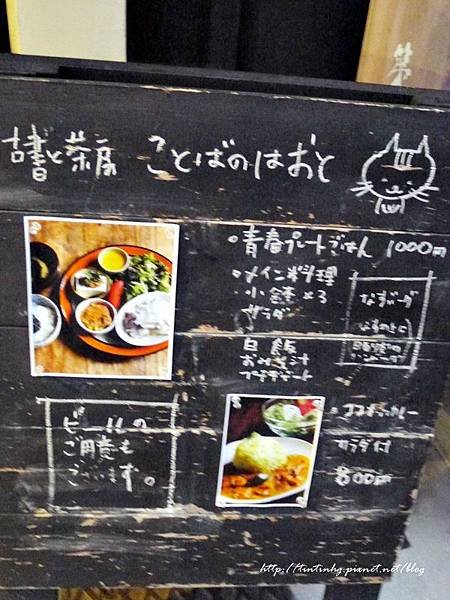 古書と茶房 ことばのはおと
青春プレートごはん 1000円
メイン料理
小鉢×3
サラダ
白飯
おみそ汁
プチデザート
なすバーグ
ビールの
ご用意も
ございます。
サラダ付
800円
http://tintinhg.pixnet.net/blog